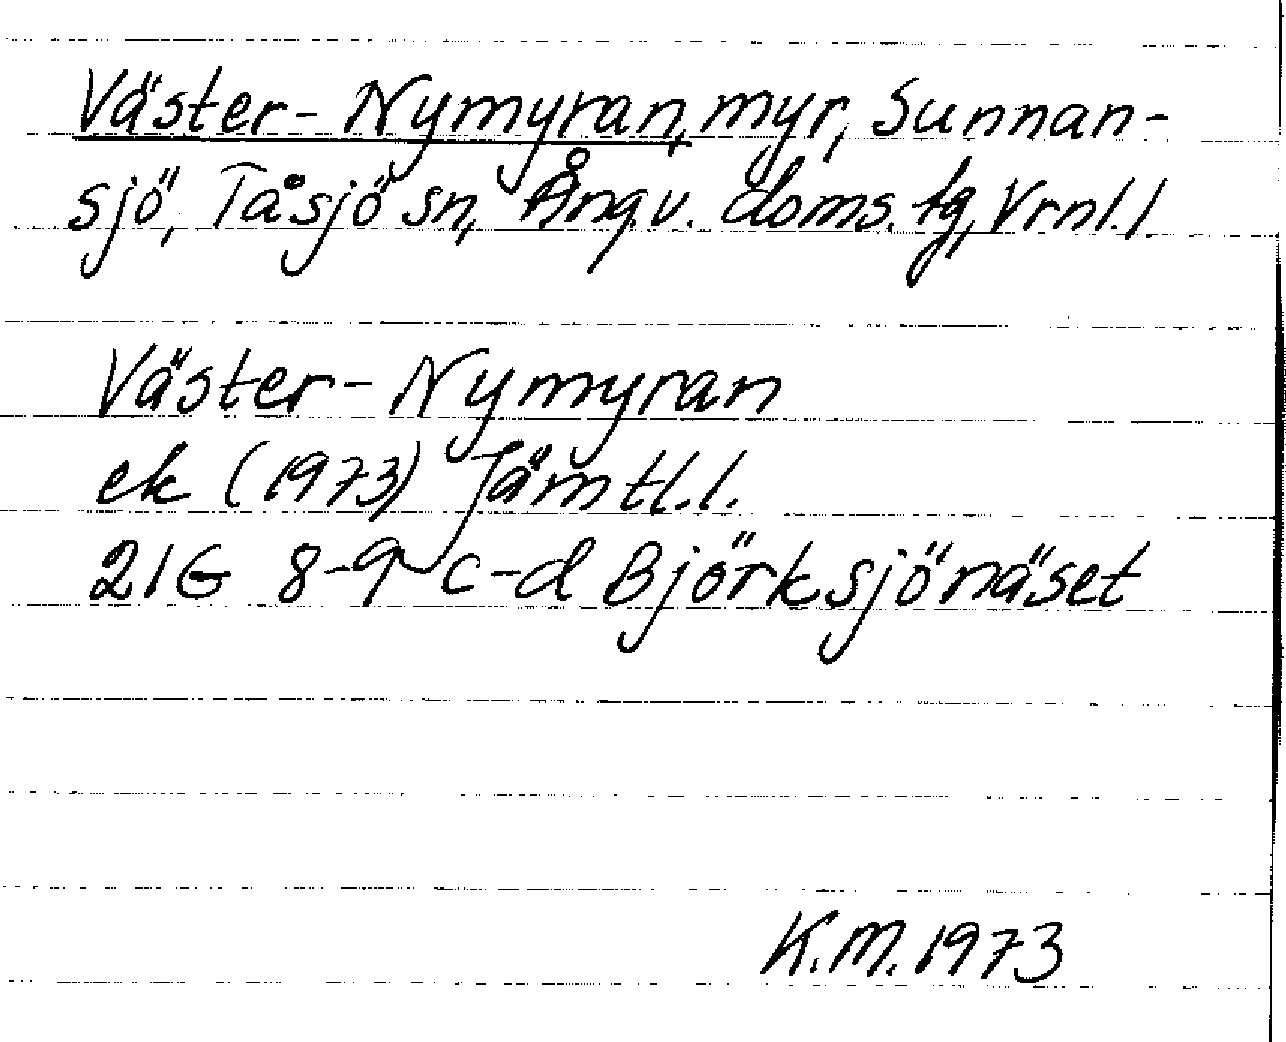 Väster-Nymyran, myr, Sunnan-
sjö, Tåsjö sn, Ångv. doms. tg, Vrnl. l
Väster-Nymyran
ek (1973) Jämtl. l.
21G 8-9 c-d Björksjönäset
K.M. 1973